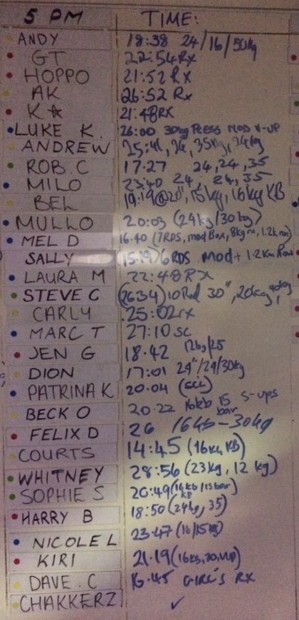 5 PM TIME:
ANDY 18:38 24/16/50kg
GT 22:54 Rx
HOPPO 21:52 Rx
AK 26:52 Rx
K☆ 21:48 RX
LUKE K. 26:00 30kg PRESS MOD V-UP
ANDREW 25:41, 24, 35kg, 24kg
ROB.C 17.27 24, 24, 35
MILO 23:40 24, 24, 35
BEL 19:19 @20", 15kg, 16kg KB
MULLO 20:03 (24kg/30kg)
MEL D 16.40 (7RDS, mod Box, 8kg, 1.2km row)
SALLY 15:19 6RDS mod + 1.2km Row
LAURA M 22:48 RX
STEVE C 26:34 10Rd 30", 20kg, 40kg
CARLY 25:02 rx
MARC T 27:10 sc
JEN G 18.42 12kg/25
DION 17:01 24"/24/30kg
PATRINA K 20.04 (scl)
BECK O 20.22 16kb 15 bar s-ups
FELIX D 26 16kb-30kg
COURTS 14:45 (16kg KB)
WHITNEY 28:56 (23kg, 12 kg)
SOPHIE S 20:49 (16kb/15bar)
HARRY B 18:50 (24kg, 35)
NICOLE L 23:47 (16/15kg)
KIRI 21.19 (16kg, 20,
DAVE.C 16.45 GIRL'S RX
CHAKKERZ ✓